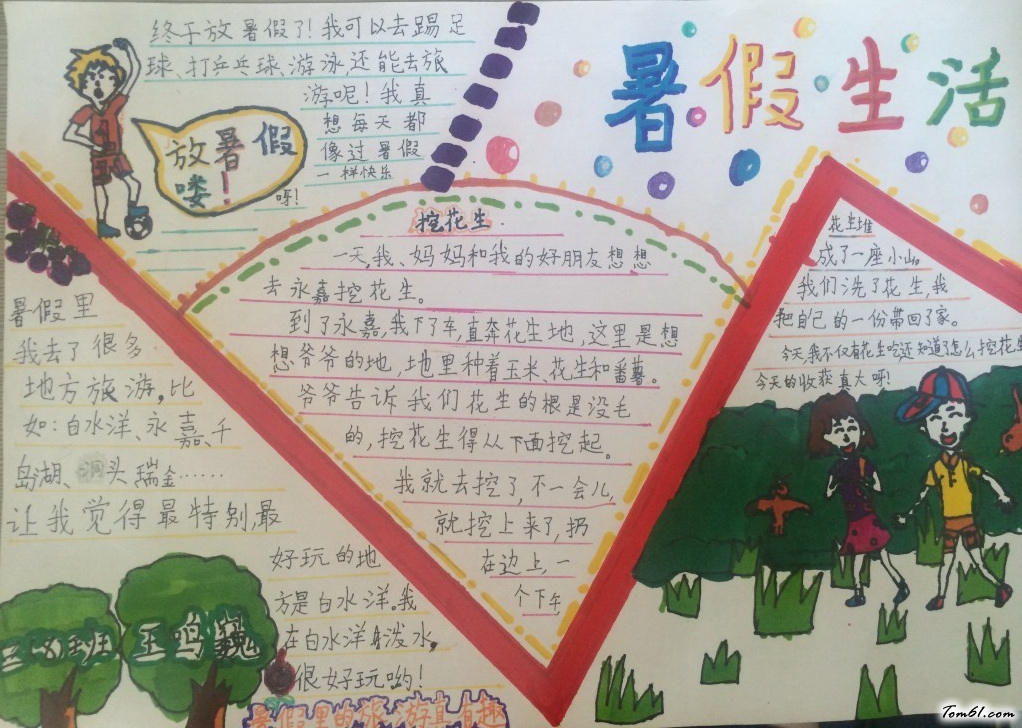 暑假生活
终于放暑假了！我可以去踢足
球、打乒乓球、游泳，还能去旅
游呢！我真
想每天都
像过暑假
一样快乐
呀！
放暑假
喽！
暑假里
我去了很多
地方旅游，比
如：白水洋、永嘉、千
岛湖、洞头瑞金……
让我觉得最特别，最
好玩的地
方是白水洋。我
在白水洋身泼水，
很好玩哟！
挖花生
一天，我、妈妈和我的好朋友想想
去永嘉挖花生。
到了永嘉，我下了车，直奔花生地，这里是想
想爷爷的地，地里种着玉米、花生和番薯。
爷爷告诉我们花生的根是没毛
的，挖花生得从下面挖起。
我就去挖了，不一会儿，
就挖上来了，扔
在边上，一
个下午
花生堆
成了一座小山。
我们洗了花生，我
把自己的一份带回了家。
今天，我不仅有花生吃还知道了怎么挖花生
今天的收获真大呀！
三8班
王鸣巍
暑假里的旅游真有趣
Tom61.com